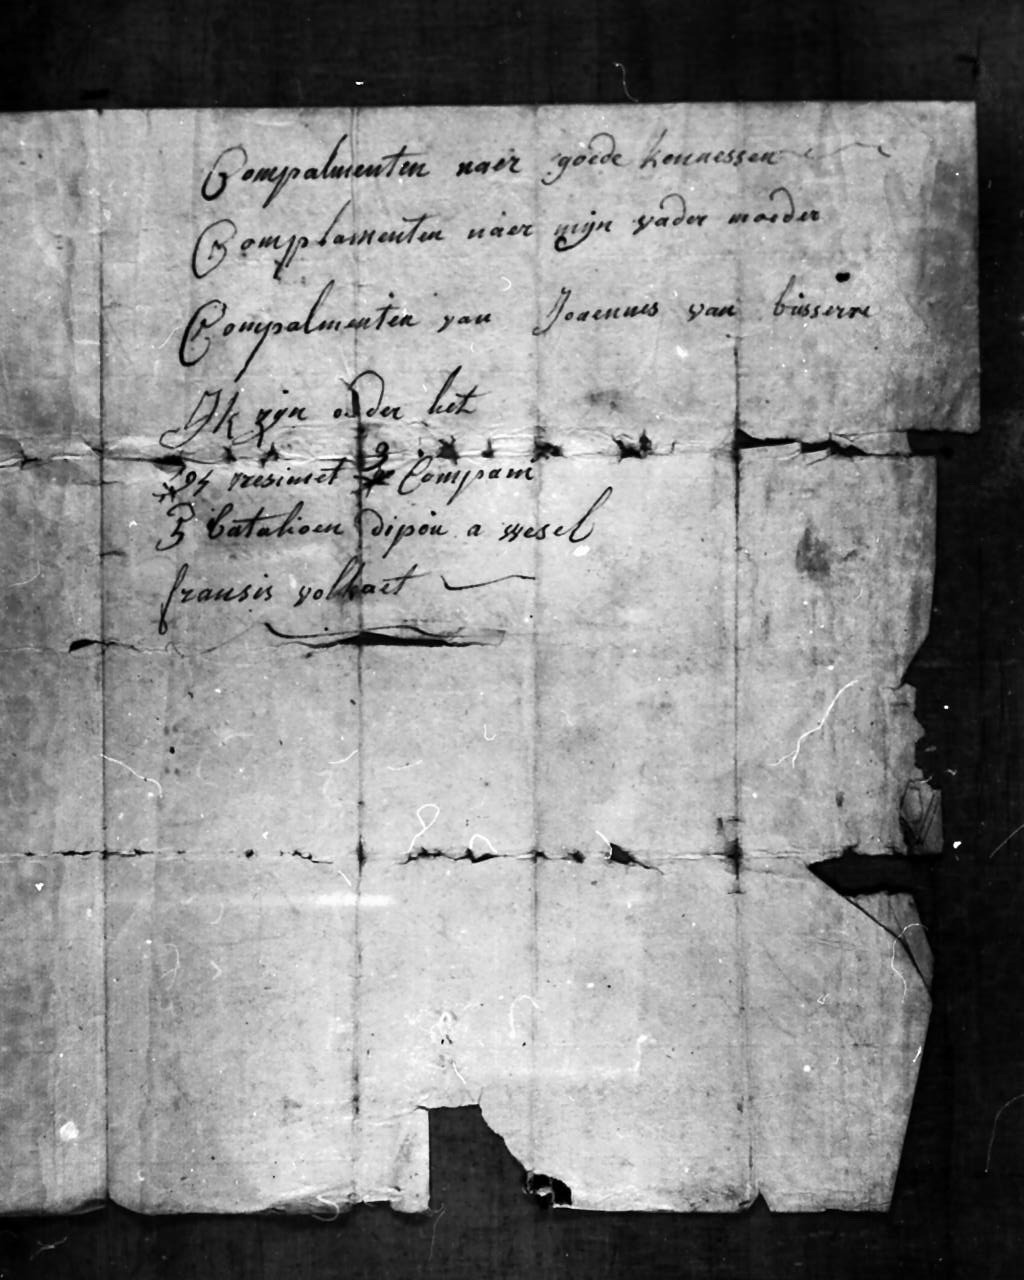 Compalmenten naer goede kennessen
Complamenten naer mijn vader moeder
Compalmenten van Joaennes van bisserre
Ik zijn onder het
resiment 2 Compam
5 batalioen dipou a wesel
fransis volkaet